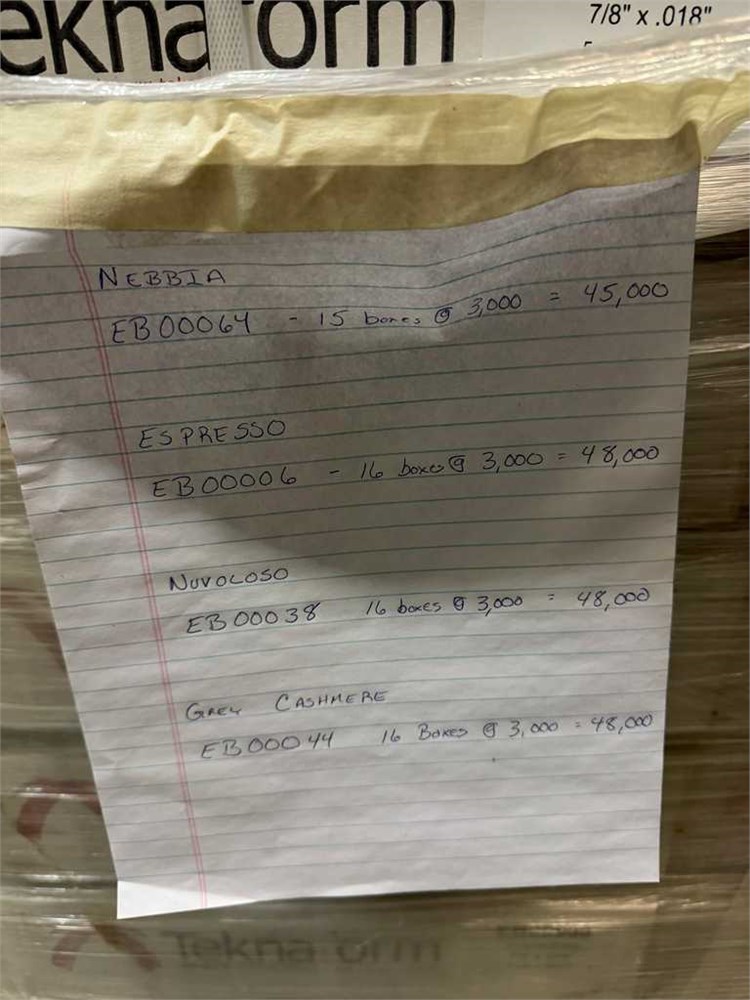 eknaform
7/8" x .018"
NEBBIA
EB00064 - 15 boxes @ 3,000 = 45,000
ESPRESSO
EB00006 - 16 boxes @ 3,000 = 48,000
NUVOLOSO
EB00038 16 boxes @ 3,000 = 48,000
GREY CASHMERE
EB00044 16 Boxes @ 3,000 = 48,000
Teknaform